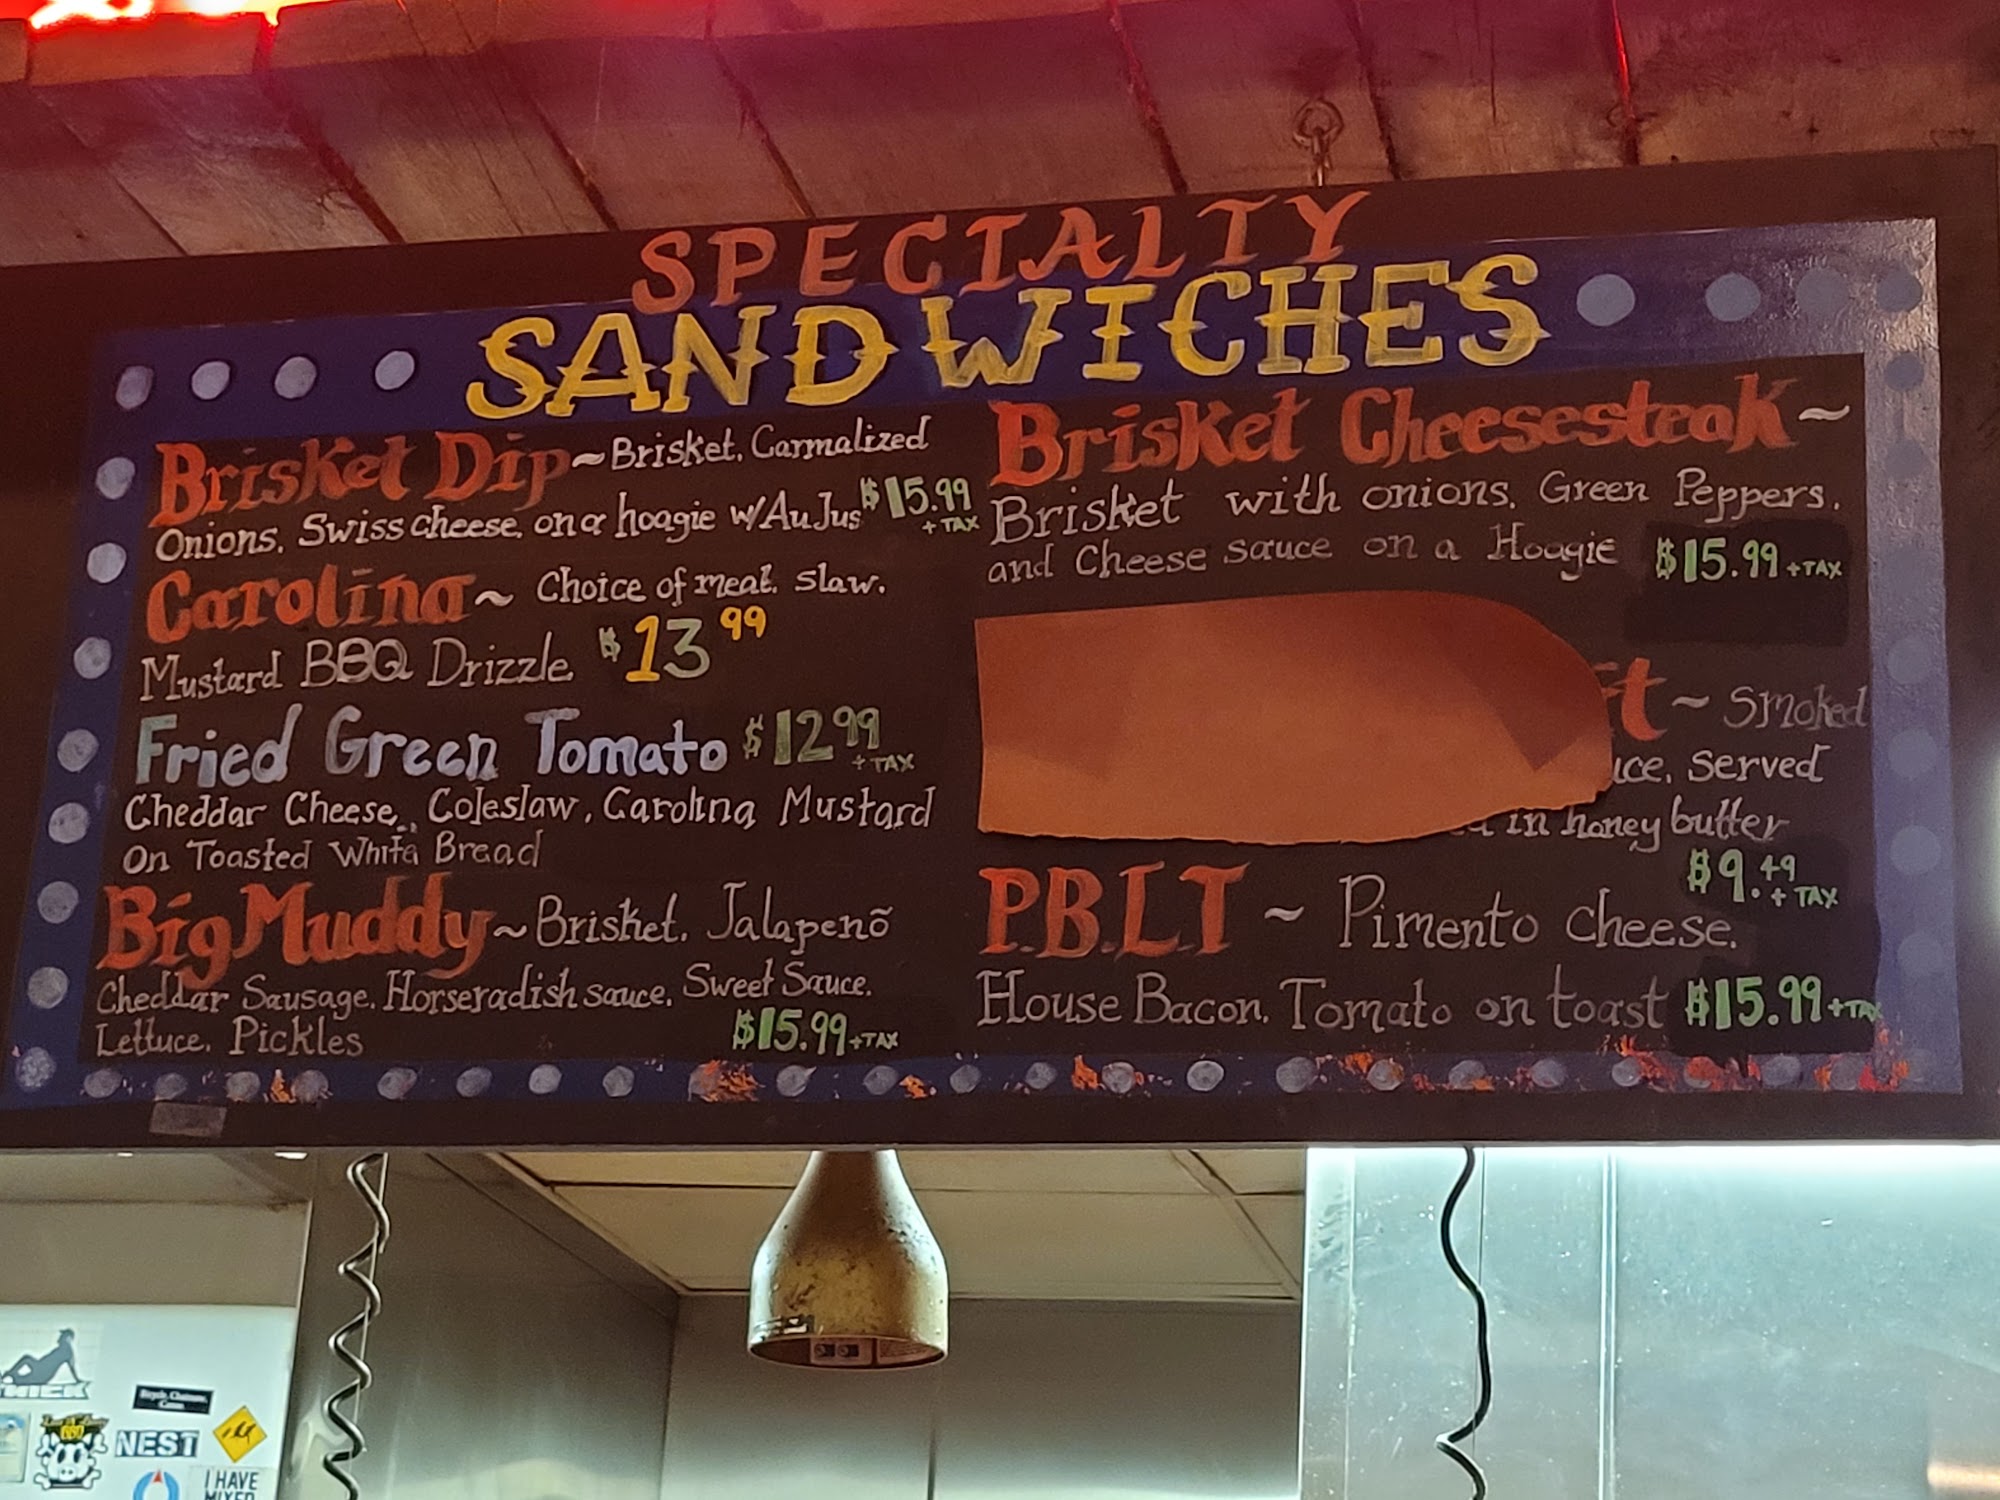 SPECIALTY
SANDWICHES
Brisket Dip ~ Brisket, Carmalized
Onions, Swiss cheese, on a hoagie w/ Au Jus $15.99
+ TAX
Carolina ~ Choice of meat, slaw,
Mustard BBQ Drizzle $13.99
Fried Green Tomato $12.99
+ TAX
Cheddar Cheese, Coleslaw, Carolina Mustard
On Toasted White Bread
Big Muddy ~ Brisket, Jalapenõ
Cheddar Sausage, Horseradish sauce, Sweet Sauce,
Lettuce, Pickles
$15.99 + TAX
Brisket Cheesesteak ~
Brisket with onions, Green Peppers,
and Cheese sauce on a Hoagie $15.99 + TAX
~ Smoked
served
in honey butter
$9.49
+ TAX
P.B.L.T ~ Pimento cheese,
House Bacon, Tomato on toast $15.99 + TAX
NEST
I HAVE
MIXED